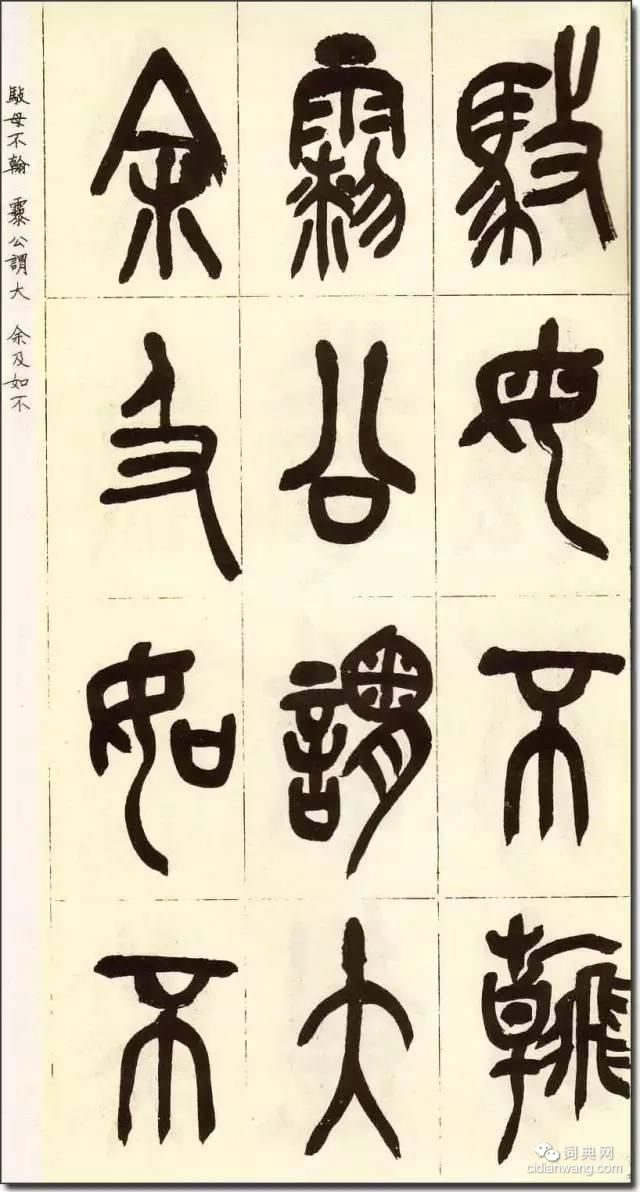 駇母不翰
公謂大
余及如不
駇母不翰 公謂大 余及如不
词典网
cidianwang.com